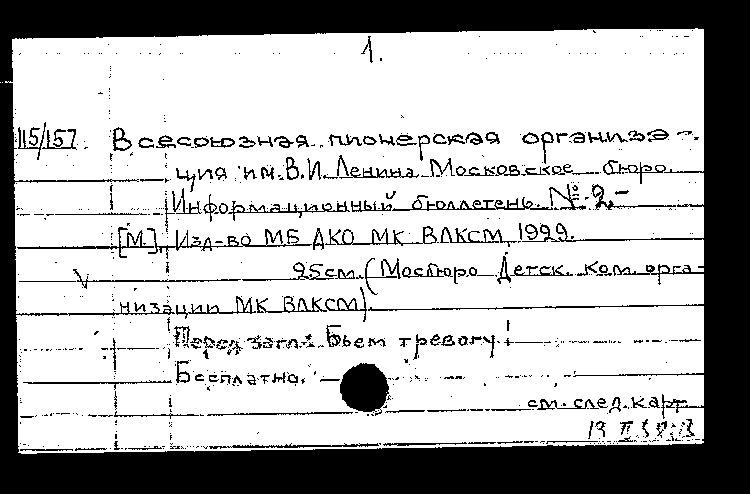 1.
115/157. Всесоюзная пионерская организа-
ция им. В.И. Ленина Московское бюро.
Информационный бюллетень. № 2.-
[М.], Изд-во МБ ДКО МК ВЛКСМ, 1929.
V 25см. (Мосбюро Детск. ком. орга-
низации МК ВЛКСМ).
Перед загл.: Бьем тревогу!
Бесплатно. —
см. след. карт
19